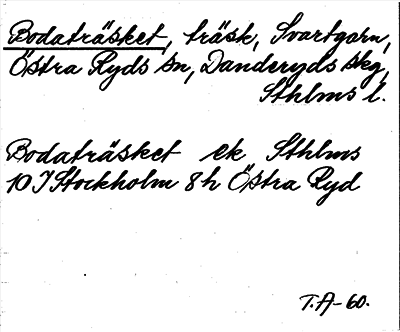 Bodaträsket, träsk, Svartgarn,
Östra Ryds sn, Danderyds skg,
Sthlms l.
Bodaträsket ek Sthlms
10 I Stockholm 8 h Östra Ryd
T.A-60.